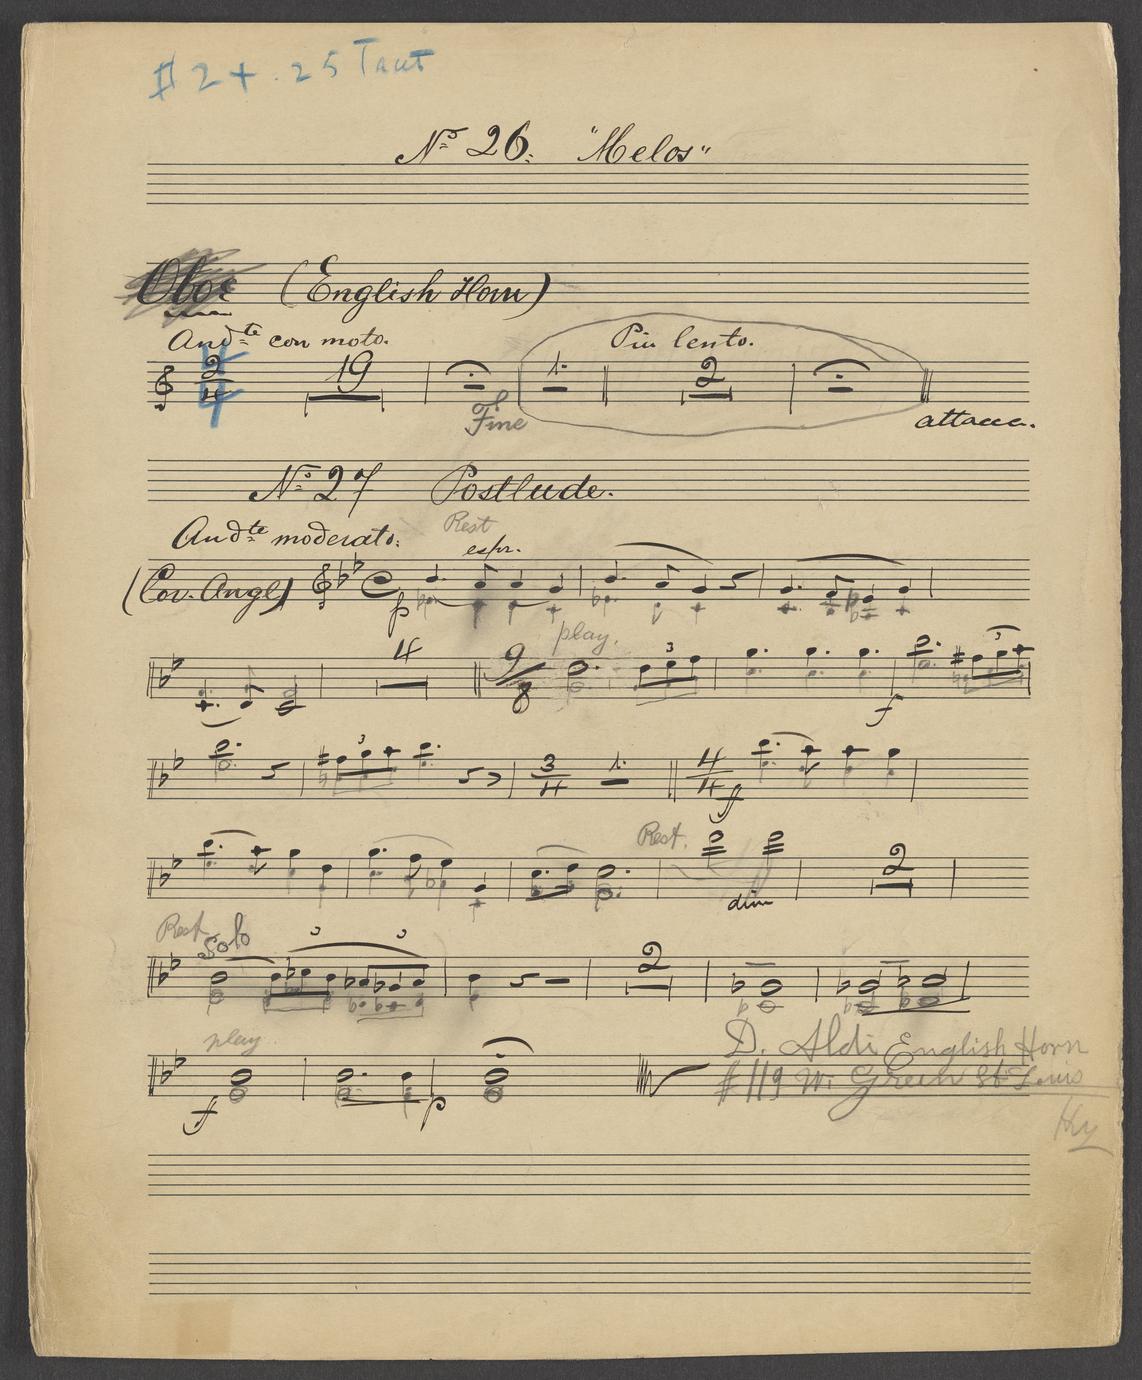 $ 2 + .25 Taut
No 26. "Melos"
Oboe (English Horn)
Andte con moto. Piu lento.
2 4 19 1. 2
Fine attacca.
No 27 Postlude.
Andte moderato. Rest
espr.
(Cor. Angl)
p
play.
4 9 8 3 3
f
3 3 4 1. 4 4
ff
Rest.
2
dim
Rest Solo
3 3 2
play
D. Aldi English Horn
#119 W. Green St Louis
f p
Ky